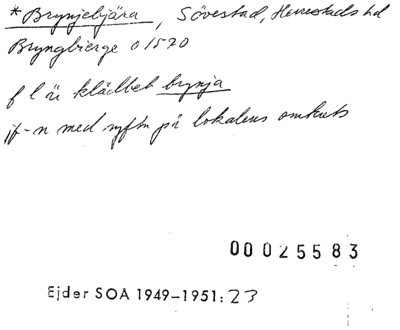 *Brynjebjära, Sövestad, Herrestads hd
Bryngbierge o 1570
f l är klädbet brynja
jf-n med syftn på lokalens omkrets
00025583
Ejder SOA 1949-1951:23